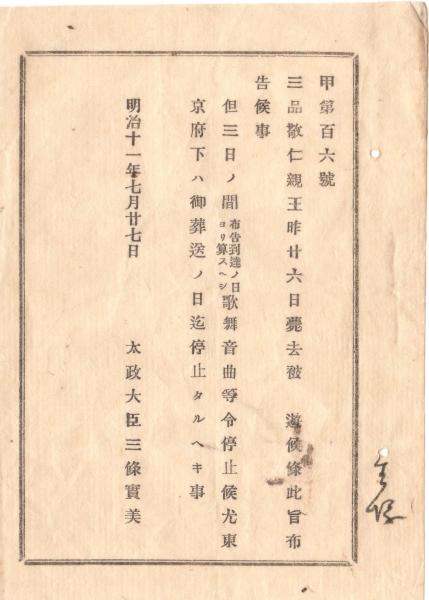 甲第百六號
三品敬仁親王昨廿六日薨去被　遊候條此旨布
告候事
但三日ノ間布告到達ノ日ヨリ算スヘシ歌舞音曲等令停止候尤東
京府下ハ御葬送ノ日迄停止タルヘキ事
明治十一年七月廿七日　　　太政大臣三條實美